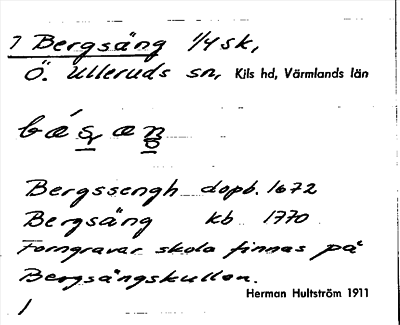 7 Bergsäng 1/4 sk,
Ö. Ulleruds sn, Kils hd, Värmlands län
Bergssengh dopb. 1672
Bergsäng kb 1770
Forngravar skola finnas på
Bergsängskullen.
Herman Hultström 1911
1